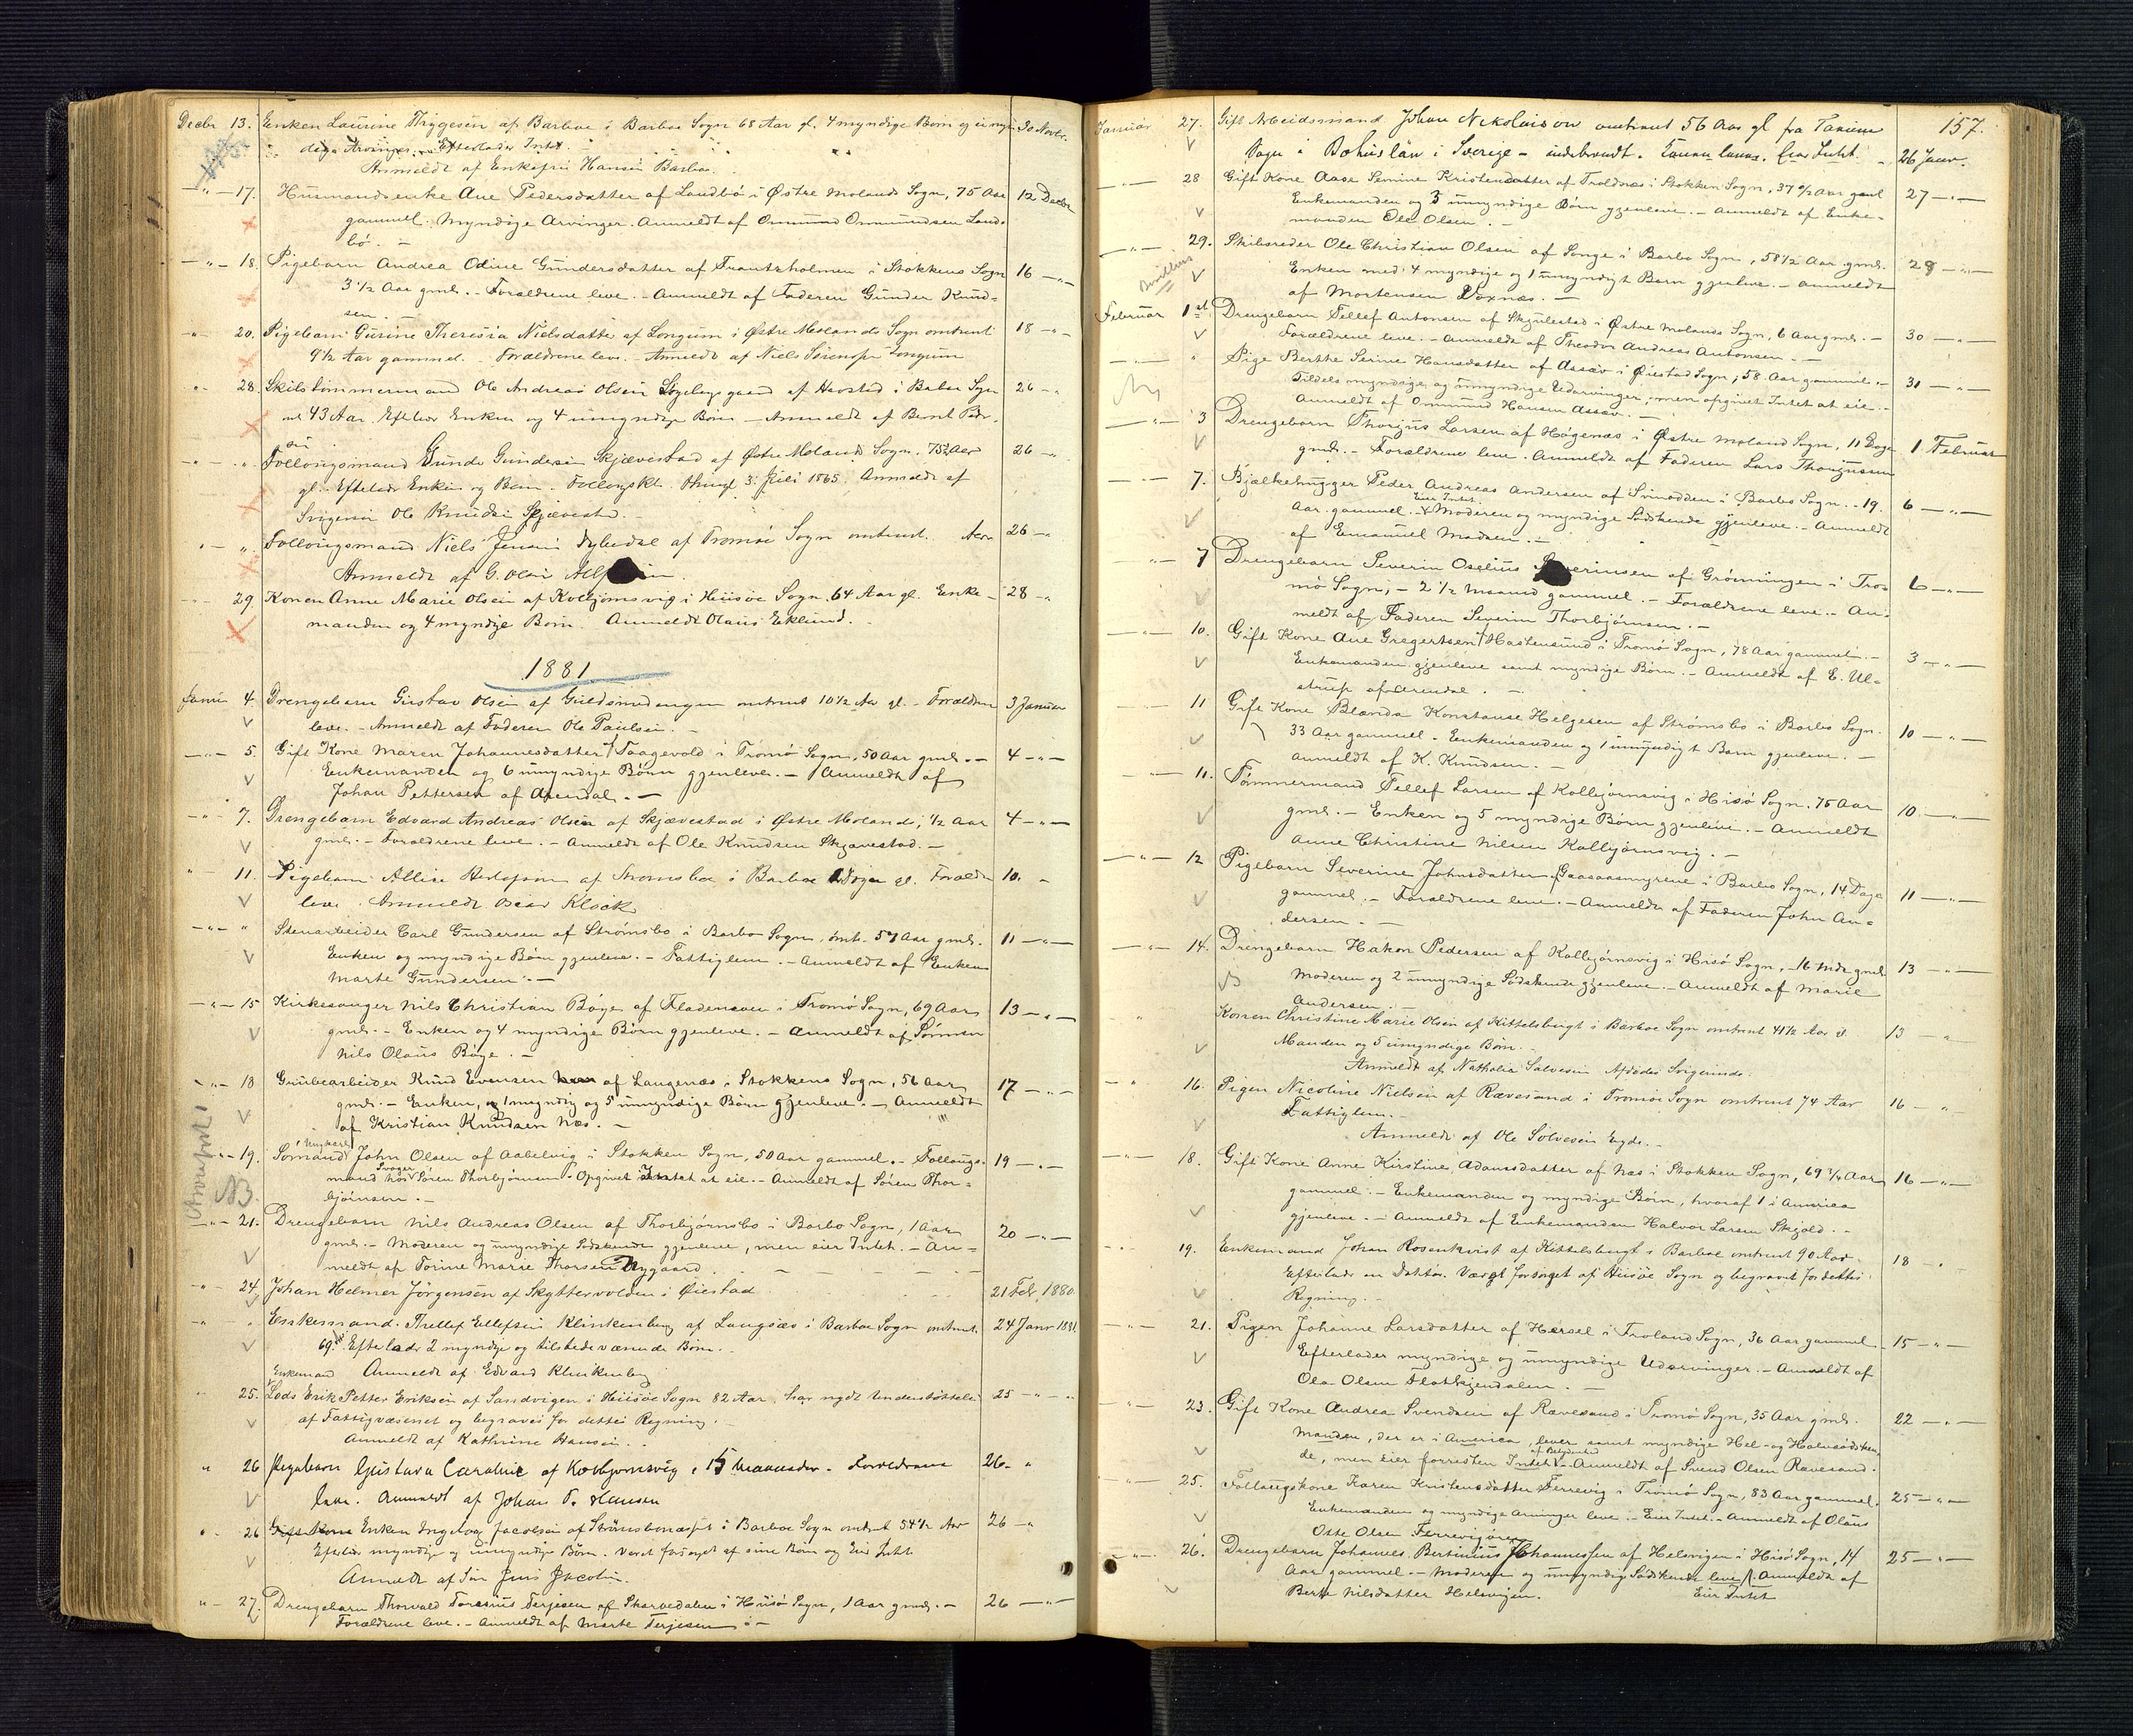 Decbr 13. Enken Laurine Thygesen af Barboe i Barboe Sogn 68 Aar gl. 4 myndige Børn og umyn- 30 Novbr.
dige Arvinger. Efterlader Intet.
Anmeldt af Enkefru Hansen Barboe.
" 17. Husmandsenke Ane Pedersdatter af Landbø i Østre Molands Sogn, 75 Aar 12 Decbr
gammel. Myndige Arvinger. Anmeldt af Ommund Ommundsen Land-
bø. –
" 18. Pigebarn Andrea Odine Gundersdatter af Frantzholmen i Stokkens Sogn 16 "
3 1/2 Aar gml. – Forældrene leve. – Anmeldt af Faderen Gunder Knud-
sen. –
" 20. Pigebarn Gusine Theresia Nielsdatter af Longum i Østre Molands Sogn omtrent 18 "
9 1/2 Aar gammel. Forældrene leve. – Anmeldt af Niels Sørensen Longum
" 28. Skibstømmermand Ole Andreas Olsen af Havsted i Barboe Sogn 26 "
43 Aar. Efterlader Enken og 4 umyndige Børn – Anmeldt af Bernt Peder-
sen
" " Follougsmand Gunder Gundersen Skjævestad af Østre Molands Sogn. 75 1/2 Aar 26 "
gl. Efterlader Enken og Børn. Follougskt. thingl. 3 Juli 1865. Anmeldt af
Svigersøn Ole Knudsen Skjævestad.
" " Follougsmand Niels Jensen af Tromøe Sogn omtrent Aar 26 "
Anmeldt af G. Olsen
" 29. Konen Anne Marie Olsen af Kolbjørnsvig i Hiisøe Sogn. 64 Aar gl. Enke- 28 "
manden og 4 myndige Børn. Anmeldt Olaus Eklund.
1881.
Januar 4. Drengebarn Gustav Olsen af Guldsmedengen omtrent 10 1/2 Aar gl. Forældrene 3 Januar
leve. – Anmeldt af Faderen Ole Paulsen.
" 5. Gift Kone Maren Johannesdatter Faagevold i Tromø Sogn, 50 Aar gml. – 4 "
Enkemanden og 6 umyndige Børn gjenleve. – Anmeldt af
Johan Pettersen af Arendal. –
" 7. Drengebarn Edvard Andreas Olsen af Skjævestad i Østre Moland, 1/2 Aar 4 "
gml. – Forældrene leve. – Anmeldt af Ole Knudsen Skjævestad. –
" 11. Pigebarn Alise af Strømsboe i Barboe Dage gl. Forældr 10. "
leve. Anmeldt Oscar Klock
" " Stenarbeider Carl Gundersen af Strømsbo i Barbo Sogn, omt. 57 Aar gml. 11 "
Enken og myndige Børn gjenleve. – Fattiglem. – Anmeldt af Enken
Marte Gundersen. –
" 15 Kirkesanger Nils Christian Bøye af Fladensaen i Tromø Sogn, 69 Aar 13 "
gml. – Enken og 4 myndige Børn gjenleve. – Anmeldt af Sønnen
Nils Olaus Bøye. –
" 18 Grubearbeider Knud Evensen af Langenæs i Stokkens Sogn, 56 Aar 17 "
gml. – Enken, 1 myndig og 5 umyndige Børn gjenleve. – Anmeldt
af Kristian Knudsen Næs. –
" 19. Sømand Ungkarl John Olsen af Aabelvig i Stokken Sogn, 50 Aar gammel. – Follougs- 19 "
mand hos Svoger Søren Thorbjørnsen – Opgivet Intet at eie. – Anmeldt af Søren Thor-
bjørnsen. –
NB.
" 21. Drengebarn Nils Andreas Olsen af Thorbjørnsbo i Barbo Sogn, 1 Aar 20 "
gml. – Moderen og umyndige Sødskende gjenleve, men eier Intet. – An-
meldt af Torine Marie Thorsen Nygaard.
" 24. Johan Helmer Jørgensen af Skyttervolden i Øiestad 21 Febr. 1880.
" " Enkemand Thellef Ellefsen Klinkenberg af Langsæv i Barboe Sogn omtrent 24 Janr 1881.
69. Efterlader 2 myndige og tilstedeværende Børn.
Anmeldt af Edvard Klinkenberg
" 25. Enkemand Lods Erik Petter Eriksen af Sandvigen i Hiisøe Sogn 82 Aar. har nydt Understøttelse 25 "
af Fattigvæsenet og begraves for dettes Regning.
Anmeldt af Kathrine Hansen.
" 26 Pigebarn Gustava Caroline af Kolbjørnsvig, 15 Maaneder. Forældrene 26 "
leve. Anmeldt af Johan T. Hansen
" 26 Gift Kone Enken Ingeborg Jacobsen af Strømsbonæset i Barboe Sogn omtrent 54 1/2 Aar 26 "
Efterlader myndige og umyndige Børn. Været forsørget af sine Børn og Eier Intet
Anmeldt af Søn Jens Jacobsen.
" 27. Drengebarn Thorvald Tomsius Terjesen af Skarvedalen i Hiisø Sogn, 1 Aar gml. – 26 "
Forældrene leve. – Anmeldt af Marte Terjesen. –
157.
Januar 27. Gift Arbeidsmand Johan Nikolaison omtrent 56 Aar gl fra Tanum
Sogn i Bohuslän i Sverige – Intet. 26 Janr.
" 28 Gift Kone Aase Semine Kristensdatter af Troldnæs i Stokken Sogn, 37 Aar gml 27 "
Enkemanden og 3 umyndige Børn gjenleve. – Anmeldt af Enke-
manden Ole Olsen. –
" 29. Skibsreder Ole Christian Olsen af Songe i Barbo Sogn, 58 1/2 Aar gml. 28 "
Enken med 4 myndige og 1 umyndigt Barn gjenleve. – Anmeldt
af Mortensen Voxnæs. –
Februar 1st Drengebarn Tellef Antonsen af Skjulestad i Østre Molands Sogn, 6 Aar gml. – 30 "
Forældrene leve. – Anmeldt af Theodor Andreas Antonsen. –
" " Pige Berthe Serine Hansdatter af Assæv i Øiestad Sogn, 58 Aar gammel. – 31 "
Tildels myndige og umyndige Udarvinger, men opgivet Intet at eie. –
Anmeldt af Ommund Hansen Assæv. –
" 3 Drengebarn Thorjus Larsen af Høgenæs i Østre Moland Sogn, 11 Dage 1 Februar
gml. – Forældrene leve. Anmeldt af Faderen Lars Thorjussen
" 7. Bjælkehugger Peder Andreas Andersen af Svinodden i Barbo Sogn. – 19. 6 "
Aar gammel. – Eier Intet. Moderen og myndige Sødskende gjenleve. – Anmeldt
af Emanuel Madsen. –
" 7 Drengebarn Severin Oselius Severinsen af Grønningen i Tro- 6 "
mø Sogn, – 2 1/2 Maaned gammel. – Forældrene leve. – An-
meldt af Faderen Severin Thorbjørnsen. –
" 10. Gift Kone Ane Gregertsen Hastensund i Tromø Sogn, 78 Aar gammel. – 3 "
Enkemanden gjenleve samt myndige Børn. – Anmeldt af E. Ul-
strup af Arendal. –
11 Gift Kone Blanda Konstanse Helgesen af Strømsbo i Barbo Sogn. 10 "
33 Aar gammel. Enkemanden og 1 umyndigt Barn gjenleve. –
Anmeldt af K. Knudsen. –
" 11. Tømmermand Tellef Larsen af Kolbjørnsvig i Hisø Sogn, 75 Aar 10. "
gml. – Enken og 5 myndige Børn gjenleve. – Anmeldt
Anne Christine Nilsen Kolbjørnsvig. –
" 12 Pigebarn Severine Johnsdatter Gaasaasmyrene i Barbo Sogn, 14 Dage 11 "
gammel. – Forældrene leve. – Anmeldt af Faderen John An-
dersen. –
" 14. Drengebarn Hakon Pedersen af Kolbjørnsvig i Hisø Sogn, – 16 Mdr gml 13 "
Moderen og 2 umyndige Sødskende gjenleve. – Anmeldt af Marie
Andersen. –
" Konen Christine Marie Olsen af Kittelsbugt i Barboe Sogn omtrent 41 1/2 Aar gl 13 "
Manden og 5 umyndige Børn. –
Anmeldt af Nathalia Salvesen Afdødes Svigerinde.
" 16. Pigen Nicoline Nielsen af Rævesand i Tromøe Sogn omtrent 74 Aar 16 "
Fattiglem. –
Anmeldt af Ole Solvesen Eyde. –
" 18. Gift Kone Anne Kirstine Adamsdatter af Næs i Stokken Sogn, 69 3/4 Aar 16 "
gammel. – Enkemanden og myndige Børn, hvoraf 1 i America
gjenleve. – Anmeldt af Enkemanden Halvor Larsen Skjold. –
19. Enkemand Johan Rosenkvist af Kittelsbugt i Barboe omtrent 90 Aar. 18 "
Efterlader en Datter. Været forsørget af Hiisøe Sogn og begravet for dettes
Regning. –
" 21. Pigen Johanne Larsdatter af Hersel i Froland Sogn, 36 Aar gammel 15 "
Efterlader myndige og umyndige Udarvinger. – Anmeldt af
Ola Olsen Flatkjendalen. –
" 23. Gift Kone Andrea Svendsen af Rævesand i Tromø Sogn, 35 Aar gml. 22 "
Manden, der er i America, lever samt myndige Hel- og Halvsødsken-
de, men eier forresten Intet af Betydenhed – Anmeldt af Svend Olsen Rævesand.
" 25. Follougskone Karen Kristensdatter Færrevig i Tromø Sogn, 83 Aar gammel. 25 "
Enkemanden og myndige Arvinger leve. – Eier Intet. – Anmeldt af Olaus
Otte Olsen Færrevigøren
" 26. Drengebarn Johannes Bertinius Johannessen af Helsvigen i Hisø Sogn, 14 25 "
Aar gammel – Moderen og umyndig Sødskende leve. Anmeldt af
Berte Nilsdatter Helsvigen. Eier Intet